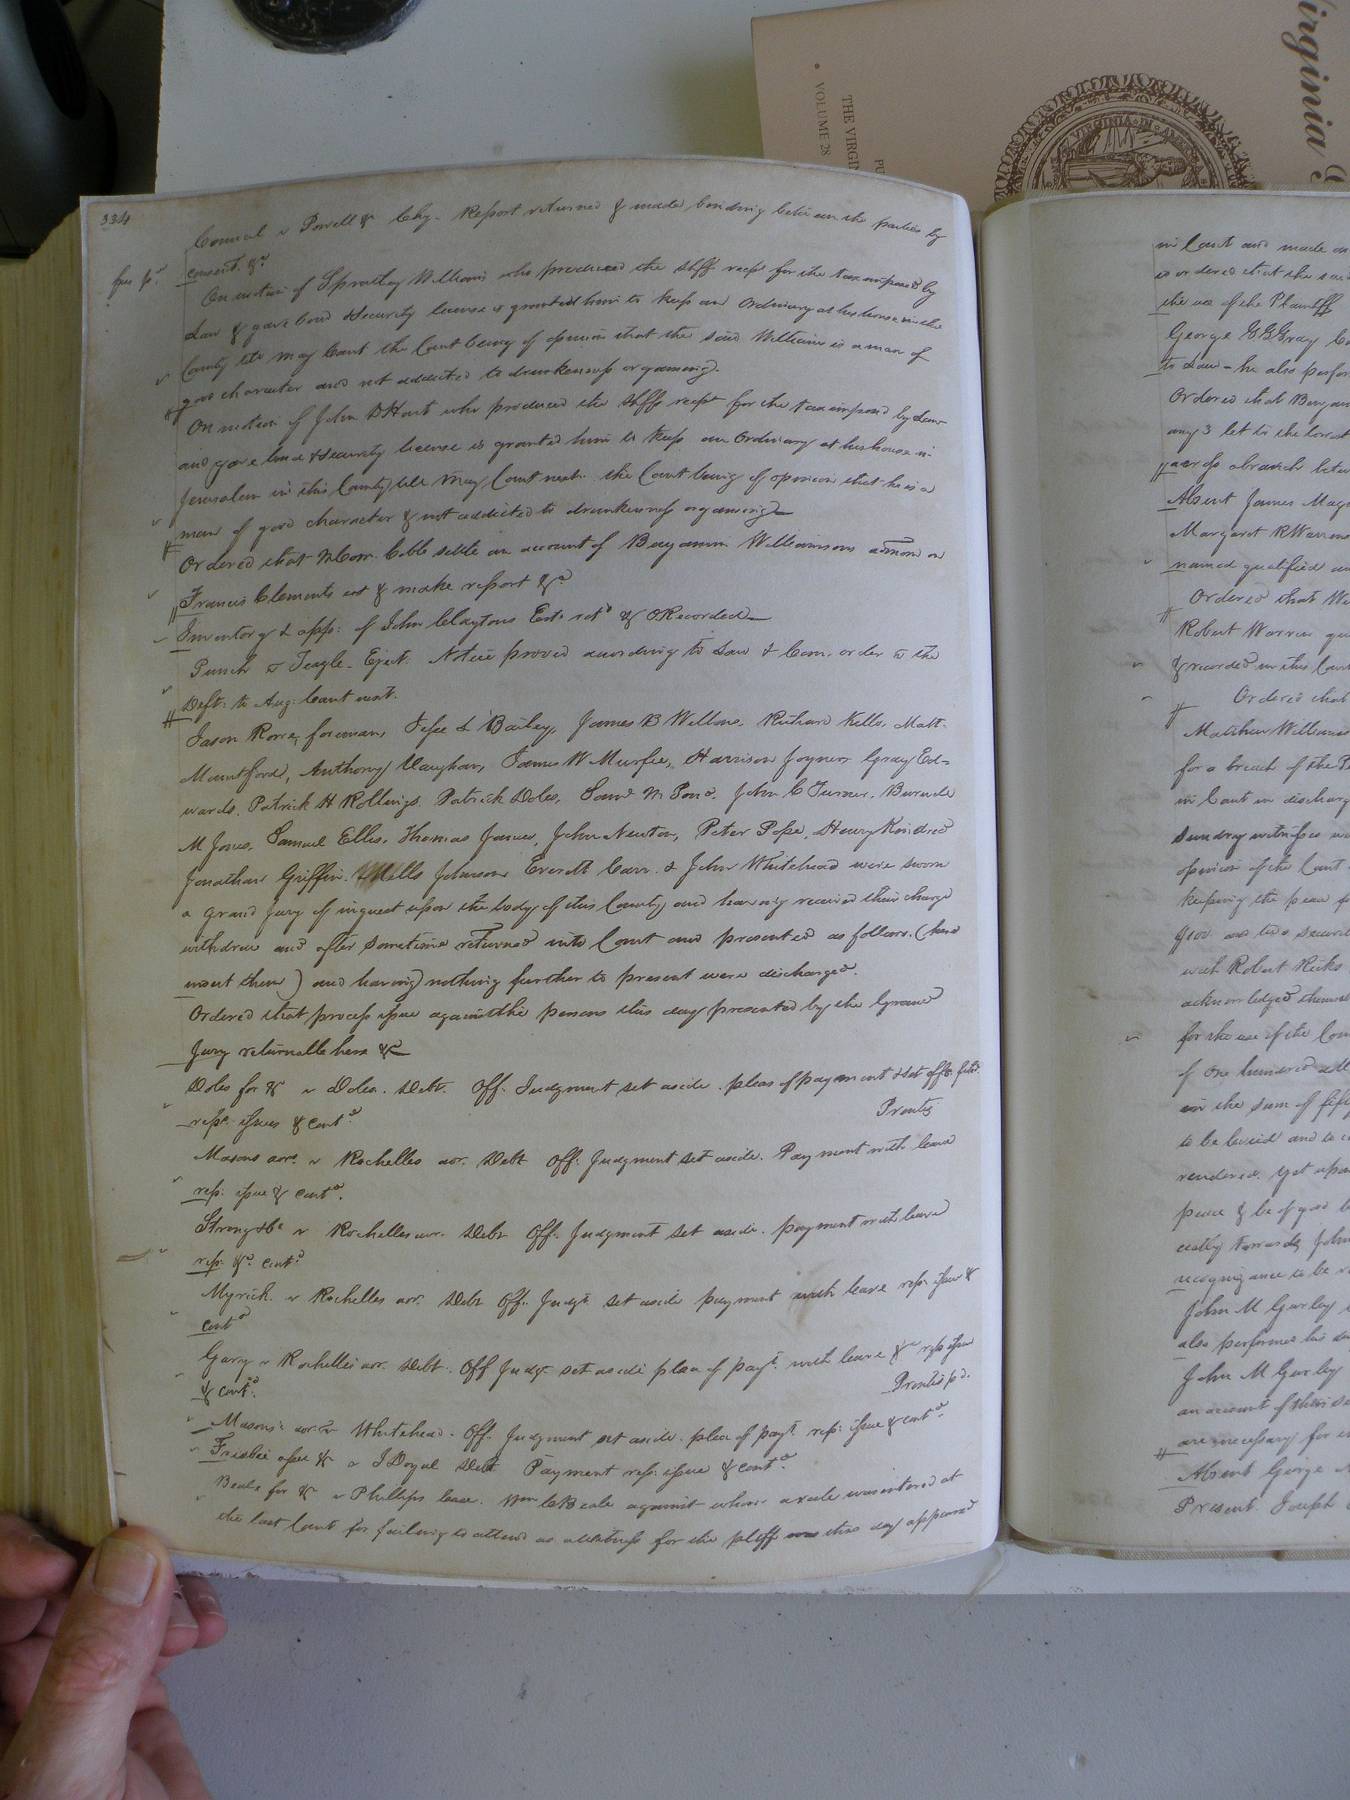 334
Council v Powell & Chy. Report returned & made binding between the parties by
consent. &c
On motion of Spratley Williams who produced the Shff rect for the tax imposed by
Law & gave bond & Security license is granted him to keep an Ordinary at his house in the
County till May Court the Court being of opinion that the said Williams is a man of
good character and not addicted to drunkenness or gaming.
On motion of John D Hart who produced the Shffs rect for the tax imposed by Law
and gave bond & security license is granted him to keep an Ordinary at his house in
Jerusalem in this County till May Court next. the Court being of opinion that he is a
man of good character & not addicted to drunkenness or gaming
Ordered that Com. Cobb settle an account of Benjamin Williamsons admon on
Francis Clements est & make report &c
Inventory & app: of John Claytons Est. retd & ORecorded
Punch v Teagle. Eject. Notice proved according to Law & Com. order v the
Deft: to Aug: Court next.
Jason Rowe, foreman, Jesse L Bailey, James B Wellons, Richard Kello, Matt.
Mountford, Anthony Vaughan, James W Murfee, Harrison Joyner, Gray Ed-
wards, Patrick H Rollings, Patrick Doles, Saml M Pond, John C Turner, Burwell
M Jones, Samuel Ellis, Thomas James, John Newton, Peter Pope, Henry Kindred
Jonathan Griffin, Mills Johnson Everett Carr & John Whitehead were sworn
a grand Jury of inquest upon the body of this County and having received their charge
withdrew and after sometime returned into Court and presented as follows. (here
insert them) and having nothing further to present were discharged.
Ordered that process issue against the persons this day presented by the Grand
Jury returnable here &c
Doles for &c v Doles. Debt. Off. Judgment set aside. pleas of payment & set offs
repn issues & contd
Prentis
Masons aor. v Rochelles aor. Debt Off. Judgment set aside. Payment with leave
rep: issue & contd.
Strong & Co v Rochelles aor. Debt Off. Judgment set aside. payment with leave
rep: &c. contd
Myrick v Rochelles aor. Debt Off. Judgt set aside payment with leave rep: issue &
contd
Gary v Rochelles aor. Debt. Off Judgt set aside plea of payt. with leave &c rep issue
& contd.
Prentis p d.
Masons aor v Whitehead. Off. Judgment set aside. plea of payt rep: issue & contd.
Frisbie assee &c v J Doyal Debt Payment rep: issue & contd.
Beale for &c v Phillips lease. Wm C Beale against whom a rule was entered at
the last Court for failing to attend as a witness for the pltff this day appeared
in Court and made
is ordered that the said
the use of the Plaintiff
George G G Gray
to Law - he also perfor
Ordered that Benjam
any 3 let to the lowest
across a branch
Absent James
Margaret R Warren
named qualified
Ordered that
Robert Warren
& recorded in this Court
Ordered that
Matthew Williams
for a breach of the
in Court in discharge
Sundry witnesses
opinion of the Court
keeping the peace
$100. and two securi
with Robert Ricks
acknowledged themse
for the use of the Com
of One hundred
in the sum of fifty
to be levied and to
rendered. yet upon
peace & be of good
cially towards John
recognizance to be
John M Gurley
also performed
John M Gurley
an account of
are necessary for
Absent George
Present Joseph
irginia
THE VIRGIN
VOLUME 28
PU
VIRGINIA IN